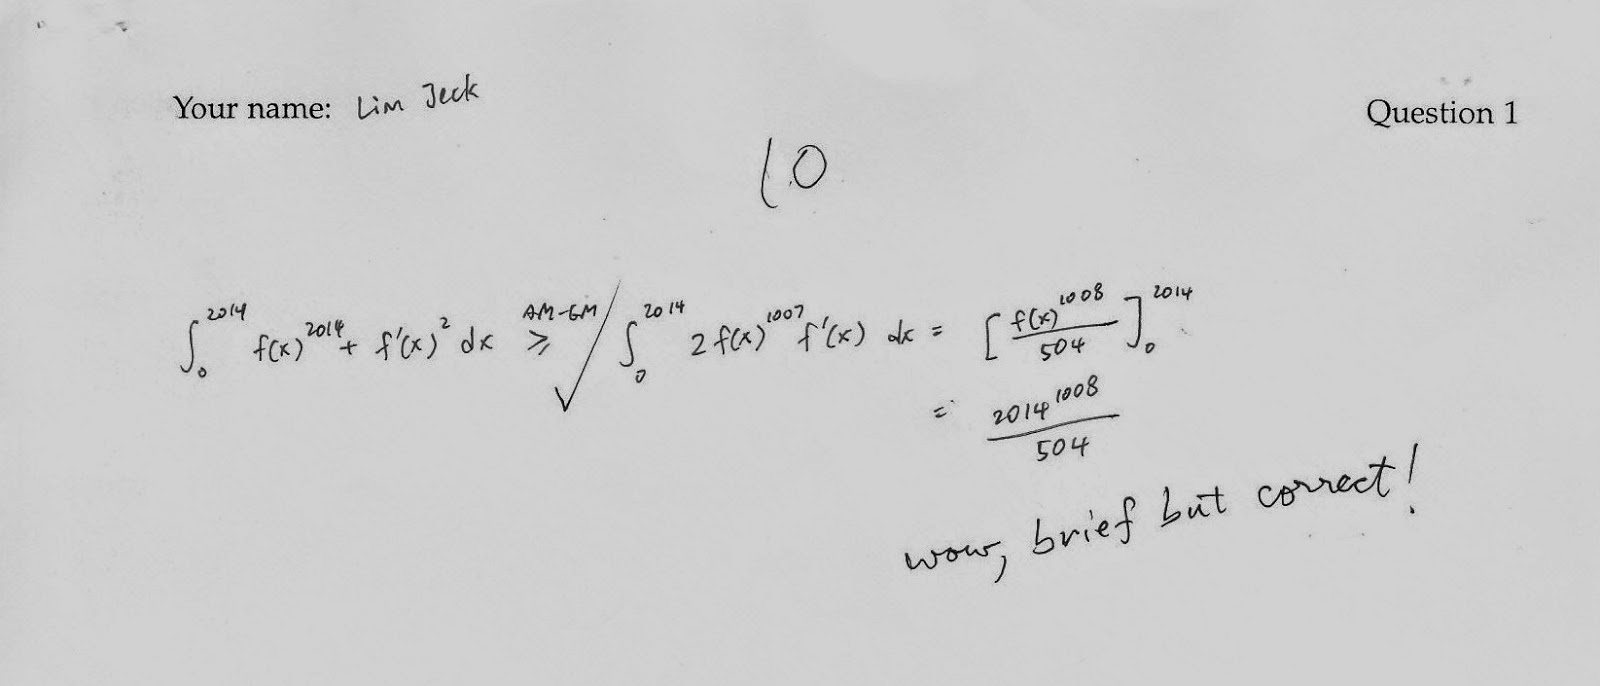 Your name: Lim Jeck
Question 1
10
∫₀²⁰¹⁴ f(x)²⁰¹⁴ + f'(x)² dx ≥ AM-GM ∫₀²⁰¹⁴ 2f(x)¹⁰⁰⁷ f'(x) dx = [f(x)¹⁰⁰⁸/504]₀²⁰¹⁴
= 2014¹⁰⁰⁸/504
wow, brief but correct!